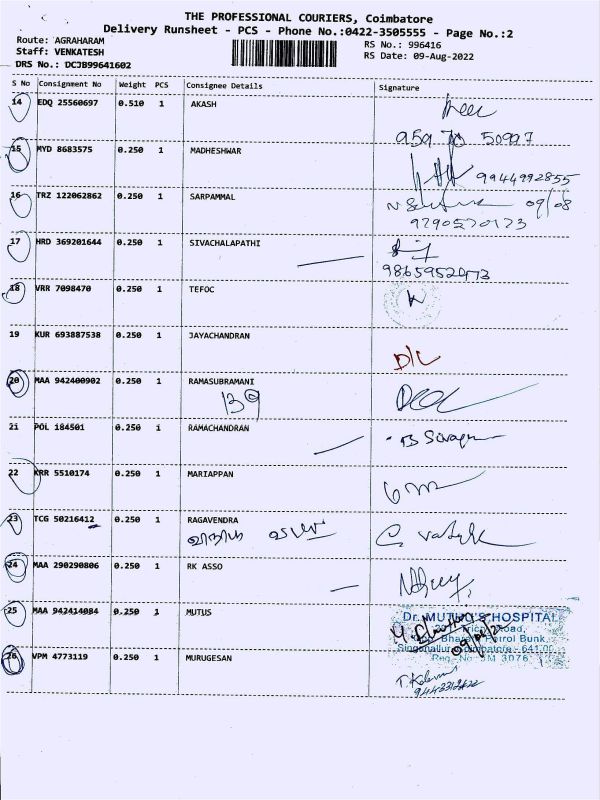 THE PROFESSIONAL COURIERS, Coimbatore
Delivery Runsheet - PCS - Phone No.:0422-3505555 - Page No.:2
Route: AGRAHARAM
RS No.: 996416
Staff: VENKATESH
RS Date: 09-Aug-2022
DRS No.: DCJB99641602
S No Consignment No Weight PCS Consignee Details Signature
14 EDQ 25560697 0.510 1 AKASH
15 MYD 8683575 0.250 1 MADHESHWAR
9944992855
16 TRZ 122062862 0.250 1 SARPAMMAL 09/08
9790570173
17 HRD 369201644 0.250 1 SIVACHALAPATHI
18 VRR 7098470 0.250 1 TEFOC
19 KUR 693887538 0.250 1 JAYACHANDRAN
D/L
20 MAA 942400902 0.250 1 RAMASUBRAMANI
139
21 POL 184501 0.250 1 RAMACHANDRAN
22 KRR 5510174 0.250 1 MARIAPPAN
23 TCG 50216412 0.250 1 RAGAVENDRA
24 MAA 290290806 0.250 1 RK ASSO
25 MAA 942414084 0.250 1 MUTUS
Dr. MUTHU'S HOSPITAL
Road,
Petrol Bunk,
Singanallur, Coimbatore - 641 00
Reg. No: JM 3076
26 VPM 4773119 0.250 1 MURUGESAN